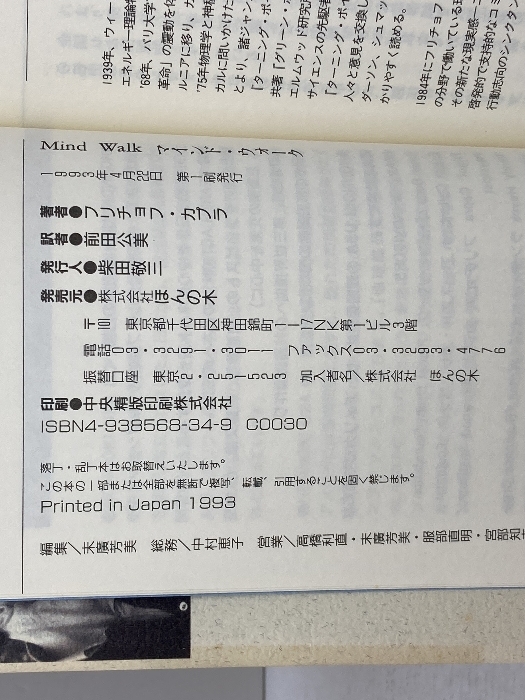 1939年、ウィー
エネルギー理論物
'68年、パリ大学
革命」の震動を体
ルニアに移り、カ
'75年物理学と神秘
カルに問いかけた
とより、諸ジャン
『ターニング・ポ
共著『グリーン・ポ
エルムウッド研究所
サイエンスの先駆者
『ターニング・ポイ
人々と意見を交換し
ダーソン、シュマッ
かりやすく読める。
1984年にフリチョフ
の分野で働いている現
その新たな現実感−ニ
啓発的で支持的なコミ
行動志向のシンクタン
Mind Walk マインド・ウォーク
1993年4月22日 第1刷発行
著者●フリチョフ・カプラ
訳者●前田公美
発行人●柴田敬三
発売元●株式会社ほんの木
〒101 東京都千代田区神田錦町1−17NK第1ビル3階
電話03・3291・3011 ファックス03・3293・4776
振替口座 東京2・251523 加入者名/株式会社 ほんの木
印刷●中央精版印刷株式会社
ISBN4-938568-34-9 C0030
落丁・乱丁本はお取替えいたします。
この本の一部または全部を無断で複写、転載、引用することを固く禁じます。
Printed in Japan 1993
編集/末廣芳美 総務/中村恵子 営業/高橋利直・末廣芳美・服部直明・宮部知